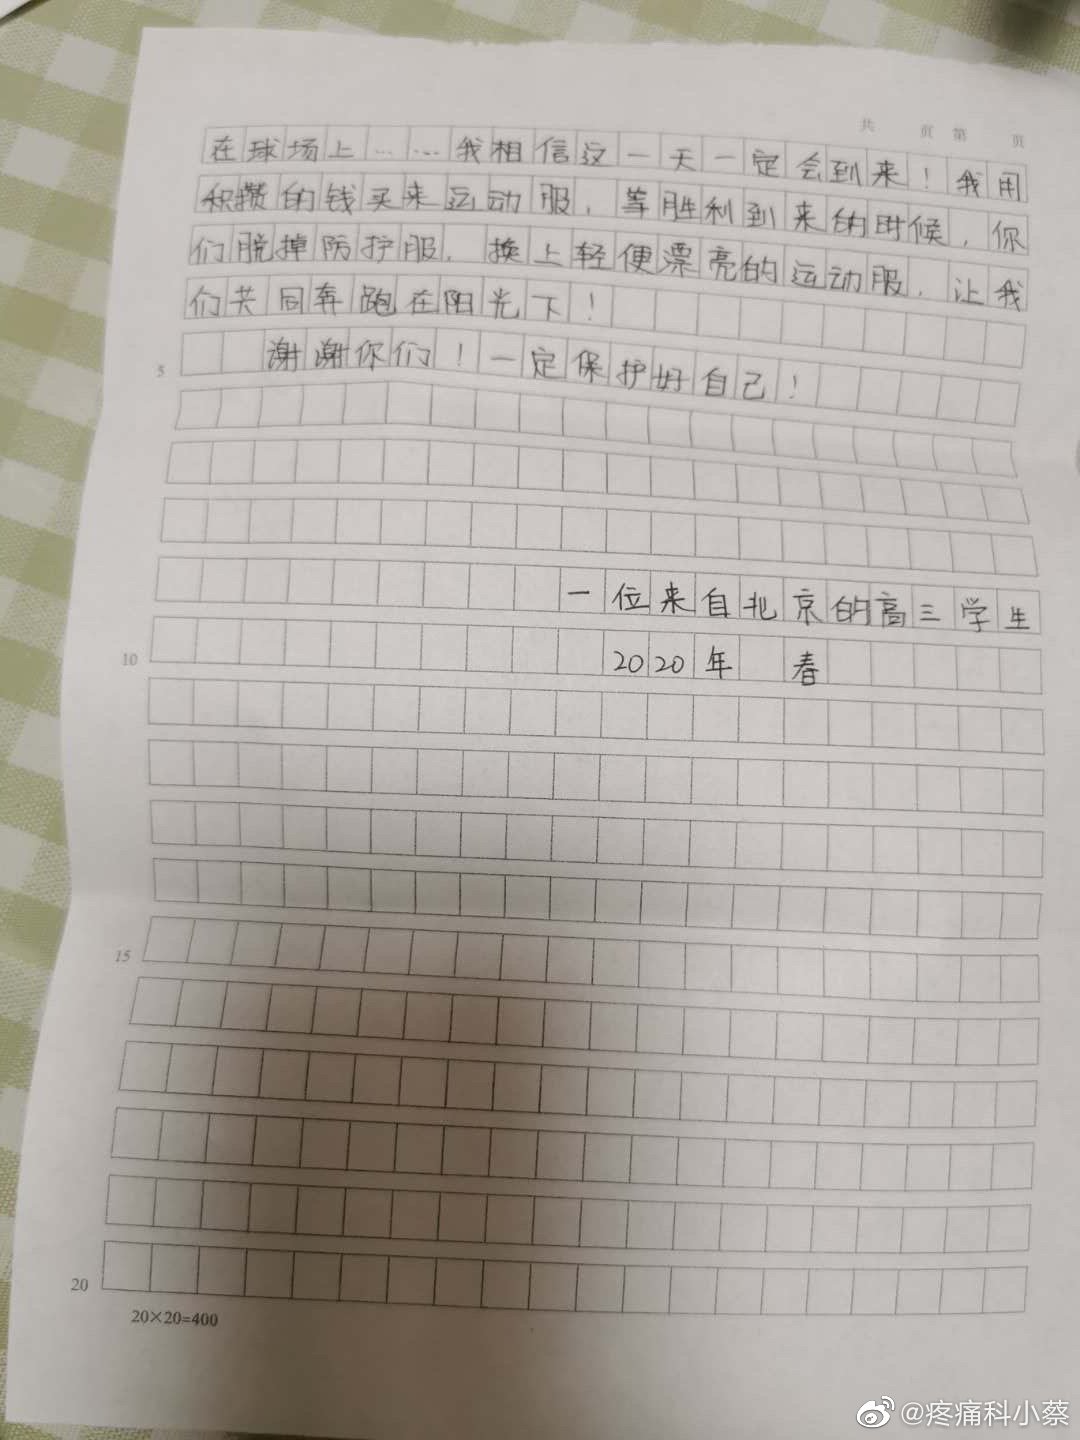 共 页 第 页
在球场上……我相信这一天一定会到来！我用
积攒的钱买来运动服，等胜利到来的时候，你
们脱掉防护服，换上轻便漂亮的运动服，让我
们共同奔跑在阳光下！
5 谢谢你们！一定保护好自己！
一位来自北京的高三学生
10 2020年 春
15
20
20×20=400
@疼痛科小蔡